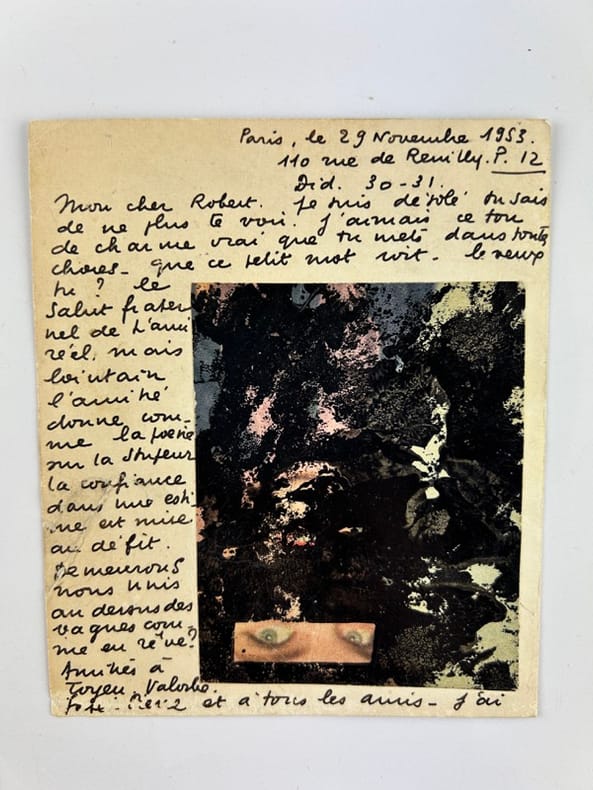 Paris, le 29 Novembre 1953.
110 rue de Reuilly. P. 12
Did. 30-31.
Mon cher Robert. Je suis désolé tu sais
de ne plus te voir. J'aimais ce ton
de charme vrai que tu mets dans toute
choses - que ce petit mot soit - le veux
tu ? le
Salut frater
nel de l'ami
réel, mais
lointain
l'amitié
donne com-
me la poesie
sur la stupeur
la confiance
dans une esti-
me est mise
au défit.
Demeurons
nous unis
au dessus des
vagues com-
me en rêve?
Amitiés à
Toyen, Valoche.
et à tous les amis - J'ai